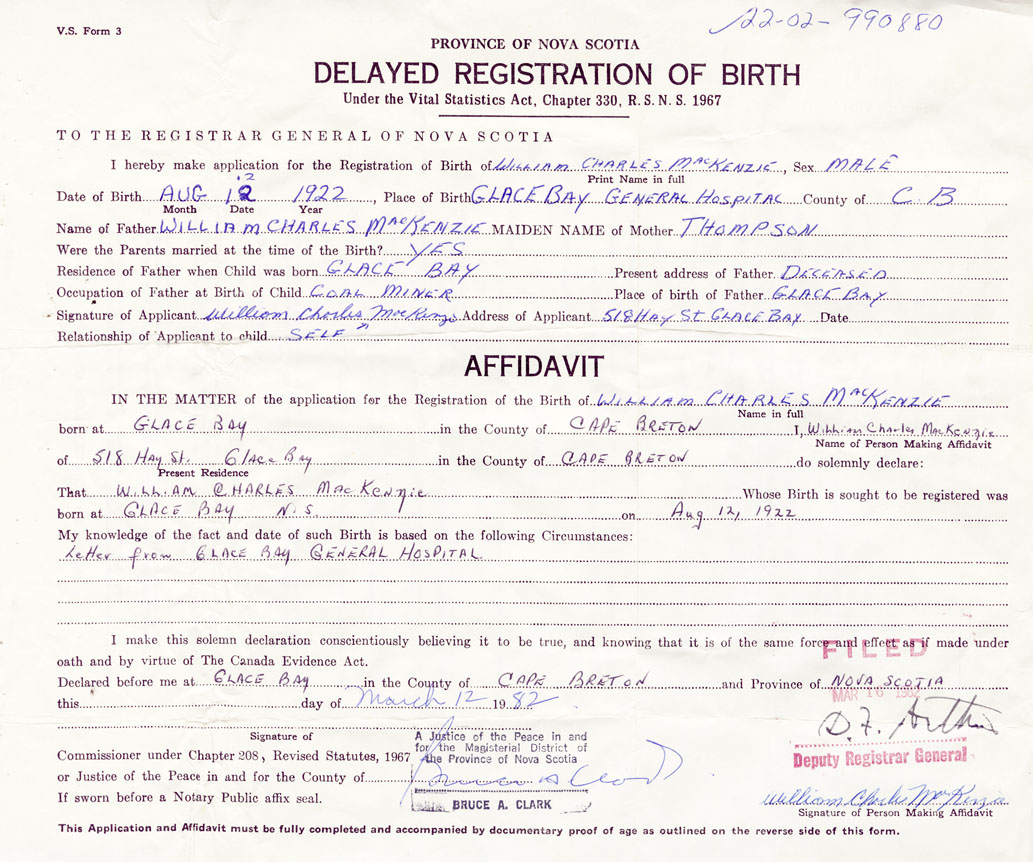 V.S. Form 3
22-02-990880
PROVINCE OF NOVA SCOTIA
DELAYED REGISTRATION OF BIRTH
Under the Vital Statistics Act, Chapter 330, R.S.N.S. 1967
TO THE REGISTRAR GENERAL OF NOVA SCOTIA
I hereby make application for the Registration of Birth of WILLIAM CHARLES MACKENZIE, Sex MALE
Print Name in full
Date of Birth AUG 12 1922, Place of Birth GLACE BAY GENERAL HOSPITAL County of C.B
Month Date Year
Name of Father WILLIAM CHARLES MACKENZIE MAIDEN NAME of Mother THOMPSON
Were the Parents married at the time of the Birth? YES
Residence of Father when Child was born GLACE BAY Present address of Father DECEASED
Occupation of Father at Birth of Child COAL MINER Place of birth of Father GLACE BAY
Signature of Applicant William Charles MacKenzie Address of Applicant 518 HAY ST. GLACE BAY Date
Relationship of Applicant to child SELF
AFFIDAVIT
IN THE MATTER of the application for the Registration of the Birth of WILLIAM CHARLES MACKENZIE
Name in full
born at GLACE BAY in the County of CAPE BRETON I, William Charles MacKenzie
Name of Person Making Affidavit
of 518 Hay St. Glace Bay in the County of CAPE BRETON do solemnly declare:
Present Residence
That WILLIAM CHARLES MacKenzie Whose Birth is sought to be registered was
born at GLACE BAY N.S. on Aug 12, 1922
My knowledge of the fact and date of such Birth is based on the following Circumstances:
Letter from GLACE BAY GENERAL HOSPITAL
I make this solemn declaration conscientiously believing it to be true, and knowing that it is of the same force and effect as if made under
oath and by virtue of The Canada Evidence Act.
FILED
Declared before me at GLACE BAY in the County of CAPE BRETON and Province of NOVA SCOTIA
MAR 16 1982
this day of March 12 1982.
D.F. Arthur
Signature of
A Justice of the Peace in and
for the Magisterial District of
the Province of Nova Scotia
Commissioner under Chapter 208, Revised Statutes, 1967
Deputy Registrar General
or Justice of the Peace in and for the County of
If sworn before a Notary Public affix seal.
BRUCE A. CLARK
William Charles MacKenzie
Signature of Person Making Affidavit
This Application and Affidavit must be fully completed and accompanied by documentary proof of age as outlined on the reverse side of this form.